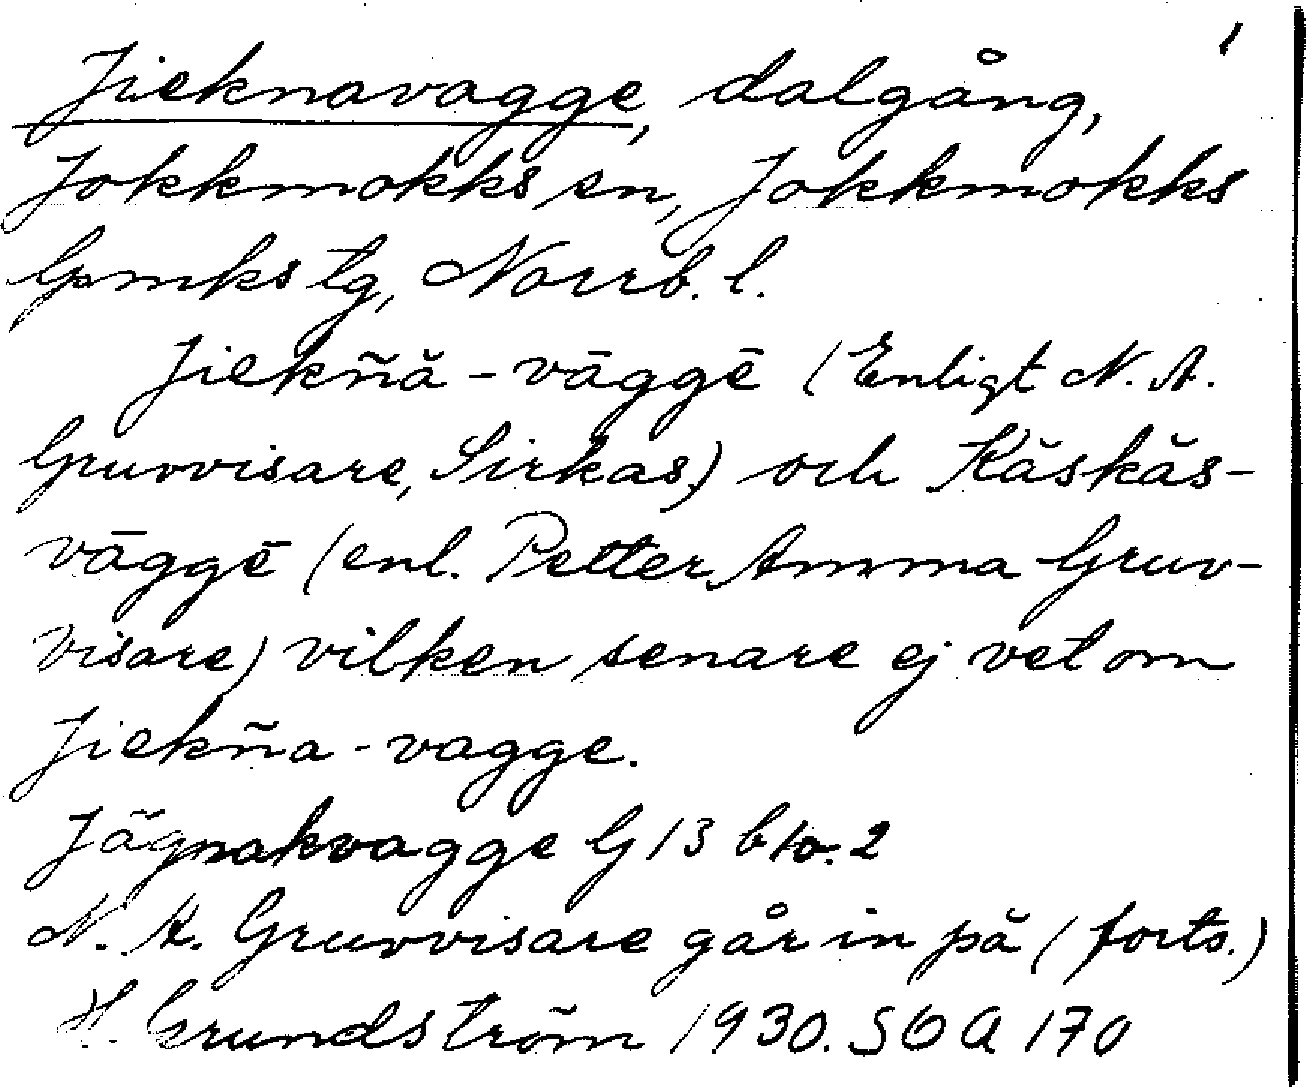 1
Jieknavagge, dalgång,
Jokkmokks sn, Jokkmokks
lpmks tg, Norrb. l.
Jiekñă - vāggē (Enligt N. A.
Gruvvisare, Sirkas) och Kăskăs-
vāggē (enl. Petter Amma Gruv-
visare) vilken senare ej vet om
Jiekña - vagge.
Jägnakvagge G 13 b ko. 2
N. A. Gruvvisare går in på (forts.)
H. Grundström 1930. SOA 170